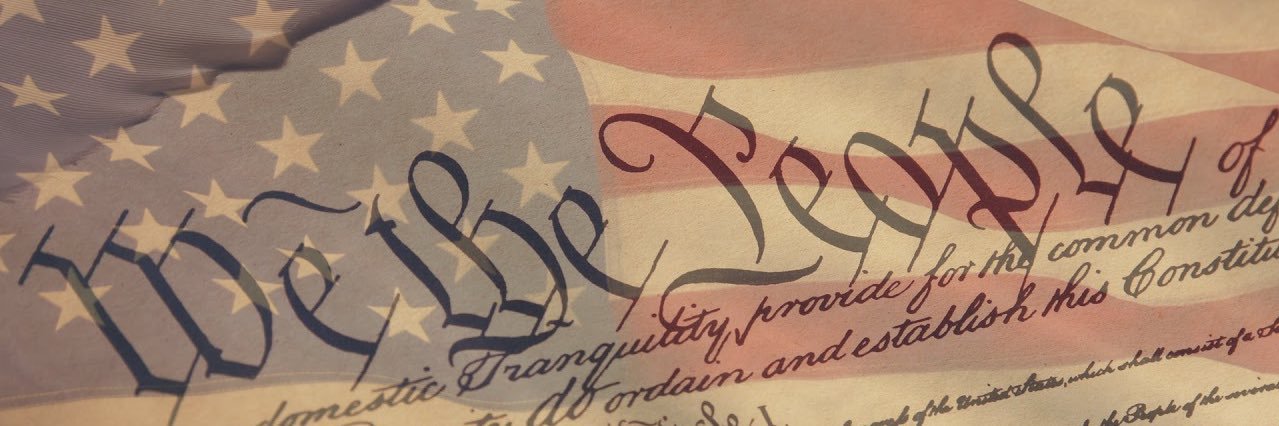 We the People of
domestic Tranquility, provide for the common def
do ordain and establish this Constitu
of the United States, which shall consist of a S
the People of the